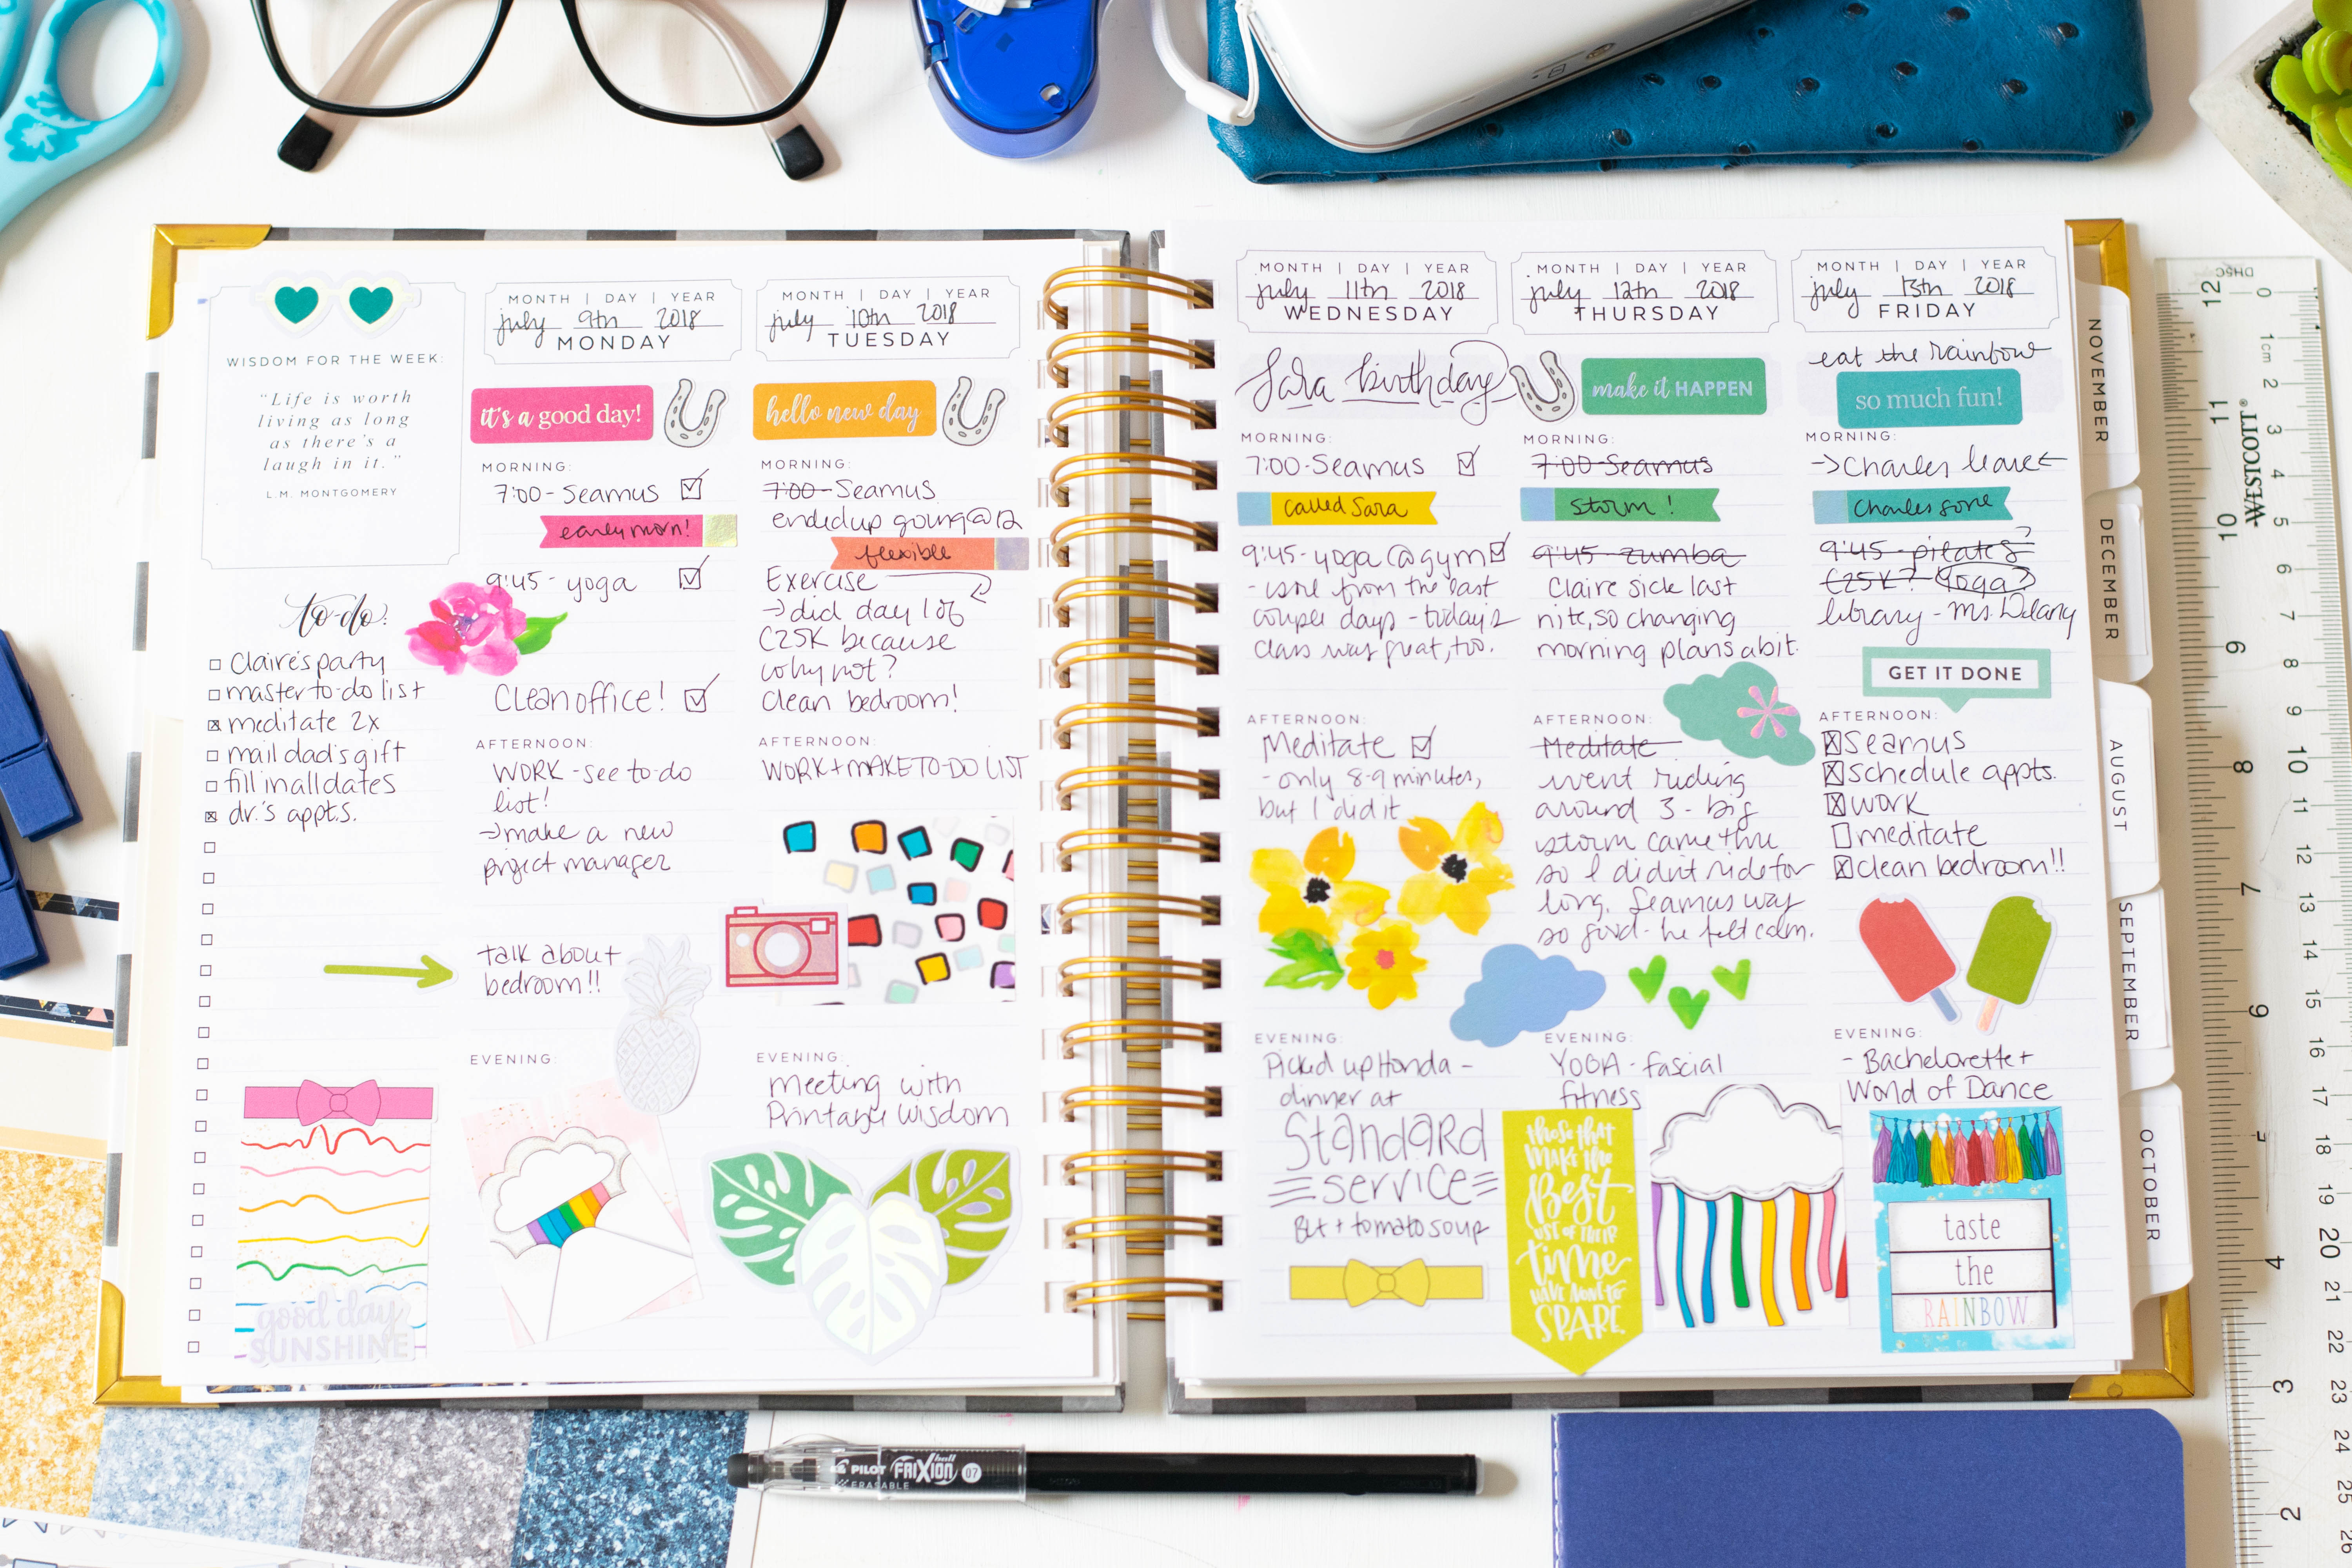 WISDOM FOR THE WEEK:
"Life is worth
living as long
as there's a
laugh in it."
L.M. MONTGOMERY
to-do:
Claire's party
master to-do list
meditate 2x
mail dad's gift
fill in all dates
dr.'s appts.
good day
SUNSHINE
MONTH | DAY | YEAR
july 9th 2018
MONDAY
it's a good day!
MORNING:
7:00 - Seamus
early morn!
9:45 - yoga
Clean office!
AFTERNOON:
WORK - see to-do
list!
→ make a new
project manager
talk about
bedroom!!
EVENING:
MONTH | DAY | YEAR
july 10th 2018
TUESDAY
hello new day
MORNING:
7:00 - Seamus
ended up going @ 12
flexible
Exercise
→ did day 1 of
C25K because
why not?
Clean bedroom!
AFTERNOON:
WORK + MAKE TO-DO LIST
EVENING:
meeting with
Printable Wisdom
MONTH | DAY | YEAR
july 11th 2018
WEDNESDAY
Sara birthday
MORNING:
7:00 - Seamus
called Sara
9:45 - yoga @ gym
- sore from the last
couple days - today's
class was great, too.
AFTERNOON:
Meditate
- only 8-9 minutes,
but I did it
EVENING:
Picked up Honda -
dinner at
Standard
service
Blt + tomato soup
MONTH | DAY | YEAR
july 12th 2018
THURSDAY
make it HAPPEN
MORNING:
7:00 - Seamus
storm!
9:45 - zumba
Claire sick last
nite, so changing
morning plans a bit.
AFTERNOON:
Meditate
went riding
around 3 - big
storm came thru
so I didn't ride for
long. Seamus was
so good - he felt calm.
EVENING:
YOGA - fascial
fitness
those that
MAKE the
Best
USE OF THEIR
time
HAVE NONE to
SPARE
MONTH | DAY | YEAR
july 13th 2018
FRIDAY
eat the rainbow
so much fun!
MORNING:
→ Charles leave ←
Charles gone
9:45 - pilates?
C25K? Yoga?
library - Ms. Delany
GET IT DONE
AFTERNOON:
Seamus
schedule appts.
work
meditate
clean bedroom!!
EVENING:
- Bachelorette +
World of Dance
taste
the
RAINBOW
NOVEMBER
DECEMBER
AUGUST
SEPTEMBER
OCTOBER
PILOT FRIXION ball 07
ERASABLE
WESTCOTT
12 11 10 9 8 7 6 4 3 2
0 1cm 2 3 4 5 6 7 8 9 10 11 12 13 14 15 16 17 18 19 20 21 22 23 24 25 26